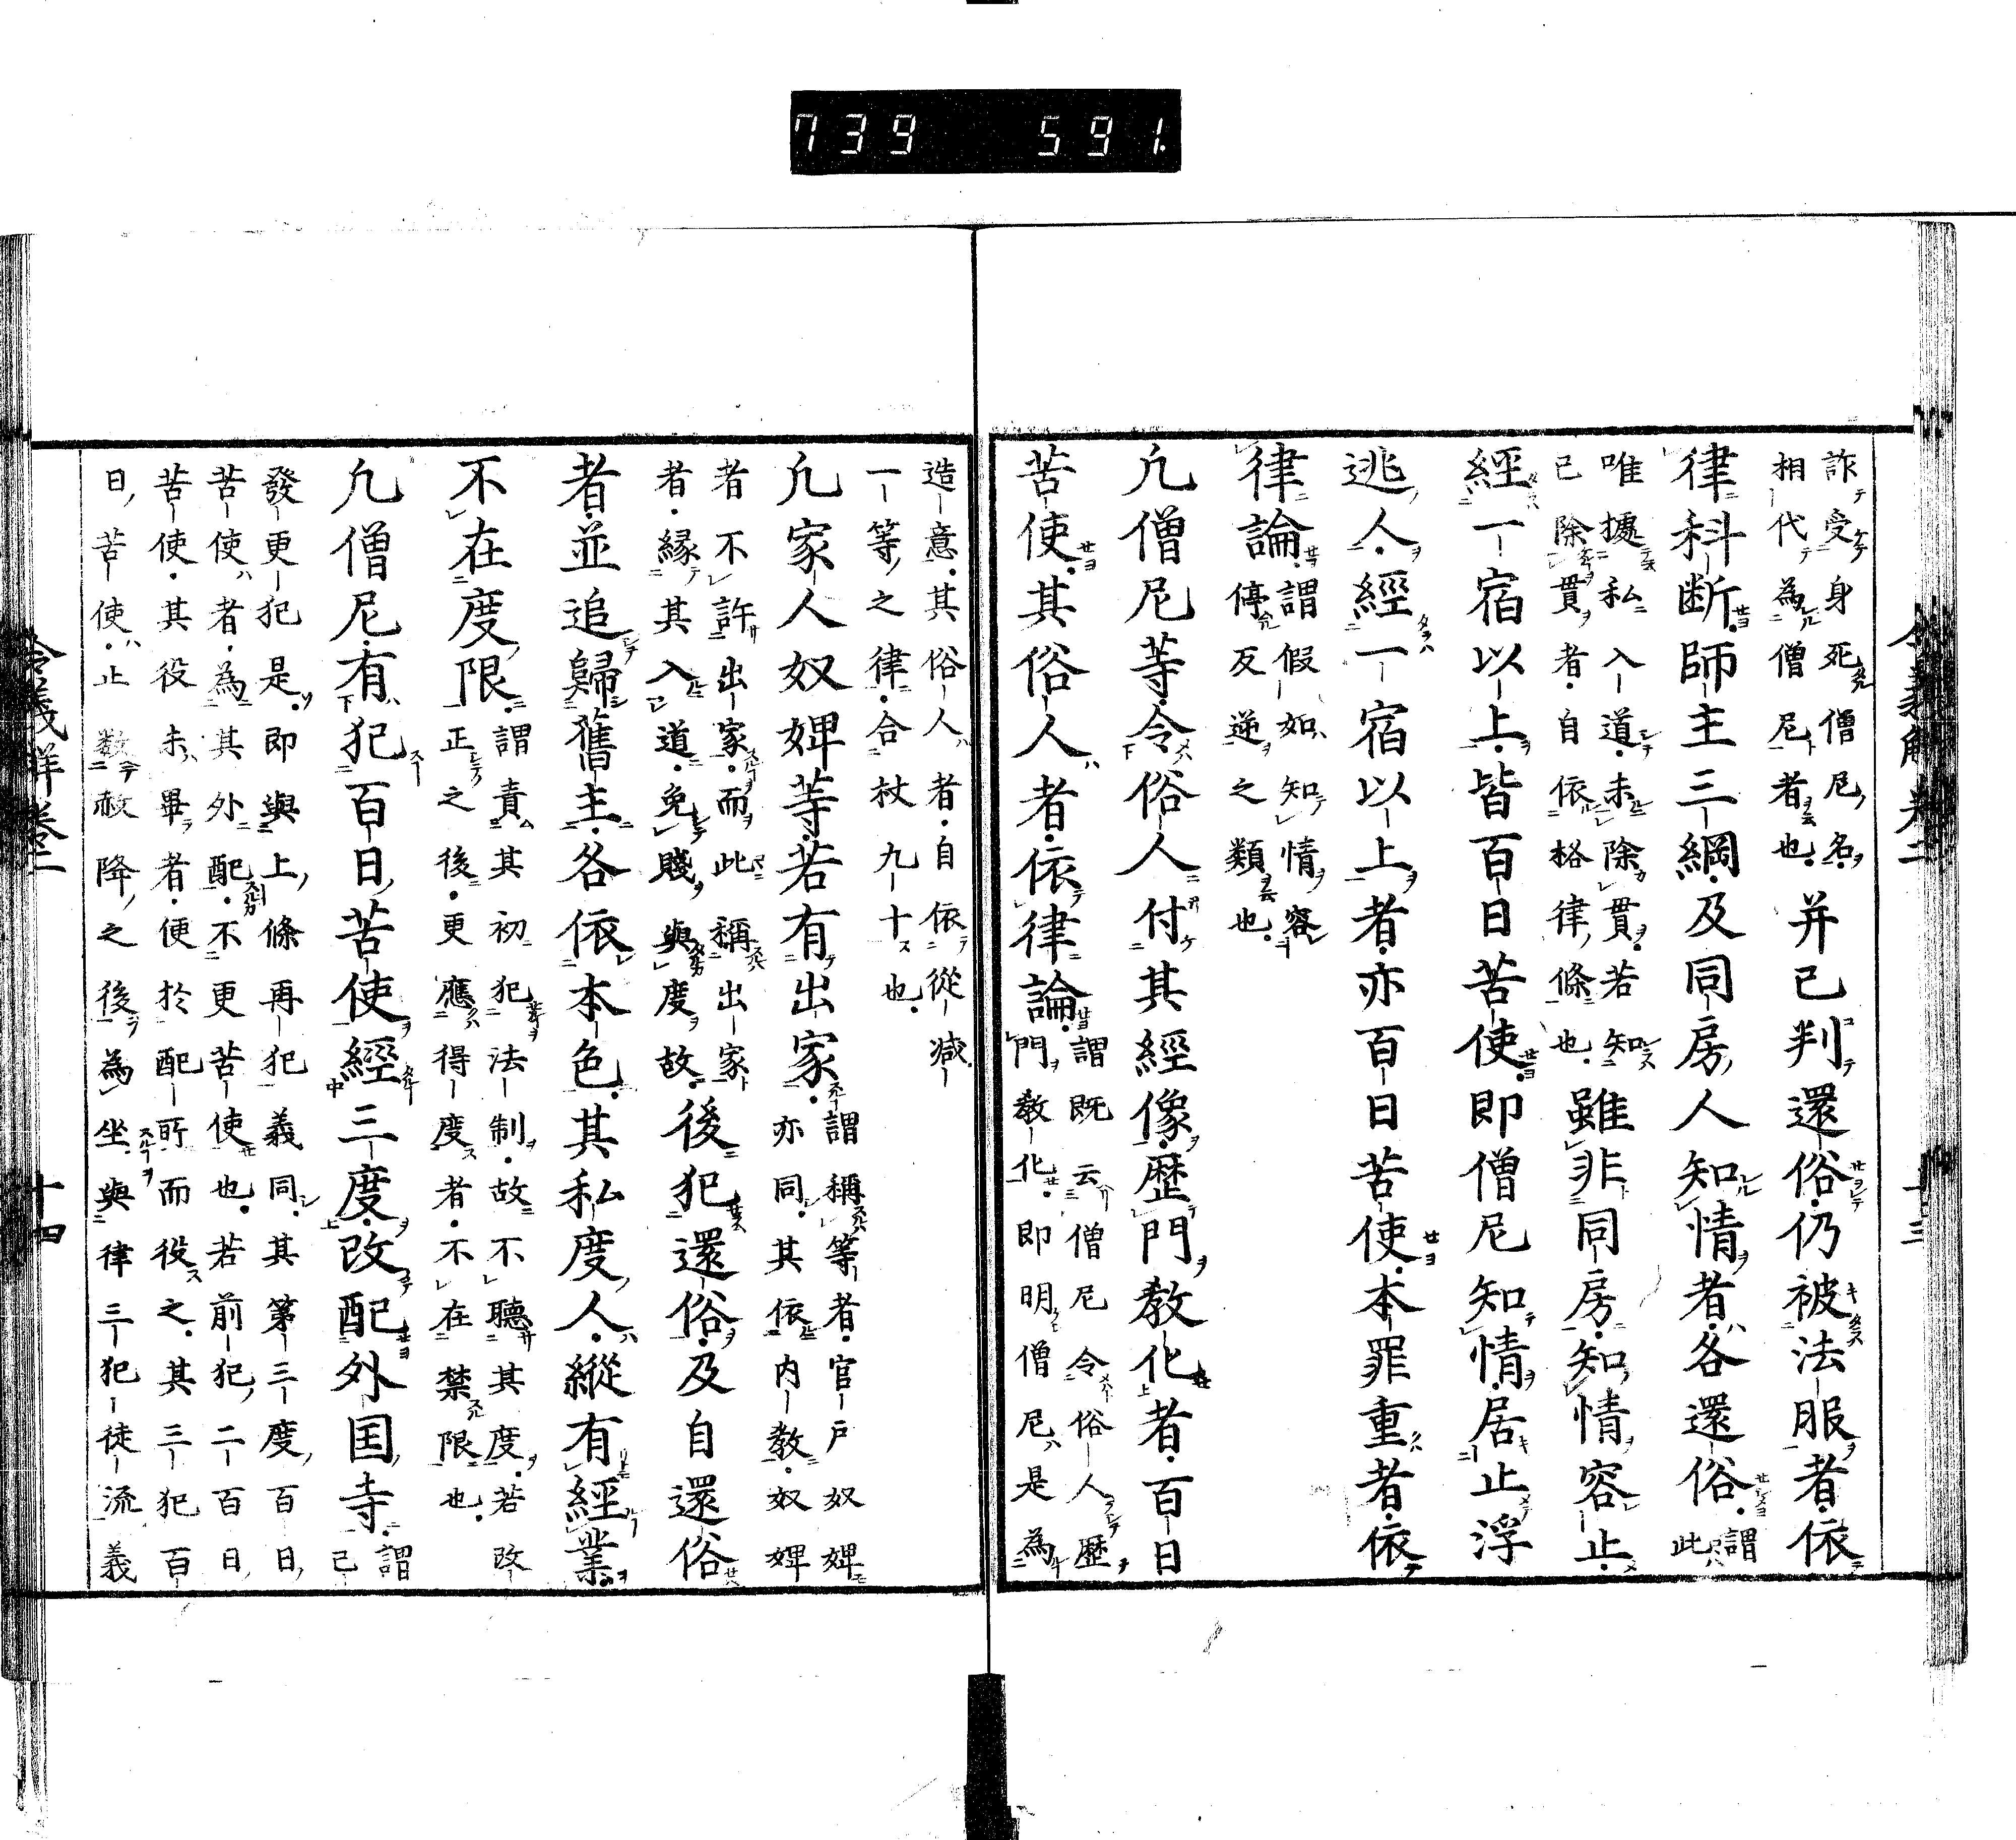 739 591.
詐受身死僧尼名
相代為僧尼者也 并已判還俗仍被法服者依
律科断師主三綱及同房人知情者各還俗 謂
此
唯據私入道未除貫若知
已除貫者自依格律條也 雖非同房知情容止
經一宿以上皆百日苦使即僧尼知情居止浮
逃人經一宿以上者亦百日苦使本罪重者依
律論 謂假如知情容
停反逆之類也
凢僧尼等令俗人付其經像歴門教化者百日
苦使其俗人者依律論 謂既云僧尼令俗人歴
門教化即明僧尼是為
造意其俗人者自依從减
一等之律合杖九十也
凢家人奴婢等若有出家 謂稱等者官戸奴婢
亦同其依内教奴婢
者不許出家而此稱出家
者縁其入道免賤與度故 後犯還俗及自還俗
者並追歸舊主各依本色其私度人縱有經業
不在度限 謂責其初犯法制故不聽其度若改
正之後更應得度者不在禁限也
凢僧尼有犯百日苦使經三度改配外国寺 謂
已
發更犯是即與上條再犯義同其第三度百日
苦使者為其外配不更苦使也若前犯二百日
苦使其役未畢者便於配所而役之其三犯百
日苦使止数赦降之後為坐與律三犯徒流義
令義解卷二 十四